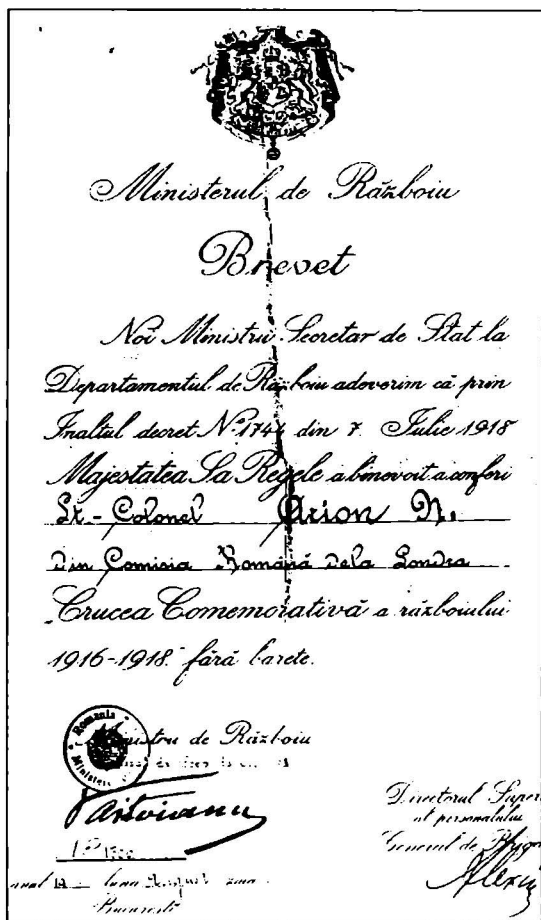 Ministerul de Războiu
Brevet
Noi Ministru Secretar de Stat la
Departamentul de Războiu adeverim că prin
Inaltul decret Nº 1744 din 7 Iulie 1918
Majestatea Sa Regele a binevoit a conferi
Lt-Colonel Arion N.
din Comisia Română dela Londra
Crucea Comemorativă a războiului
1916-1918 fără barete.
România
Ministru de Războiu
Directorul Super
al personalului
General de
luna August ziua
Bucuresti